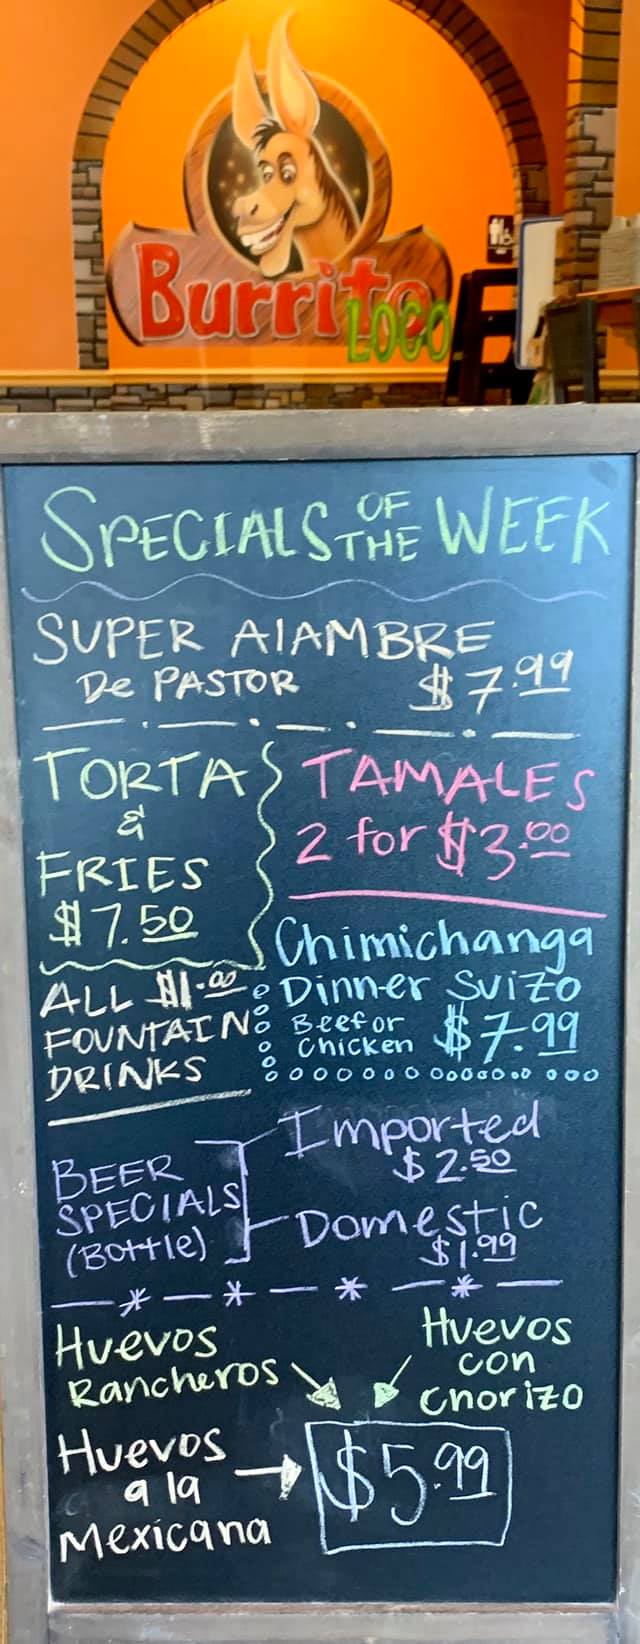 Burrito
LOCO
SPECIALS OF THE WEEK
SUPER AlAMBRE
De PASTOR $7.99
TORTA
&
FRIES
$7.50
TAMALES
2 for $3.00
Chimichanga
Dinner Suizo
Beef or
Chicken $7.99
ALL $1.00
FOUNTAIN
DRINKS
BEER
SPECIALS
(Bottle)
Imported
$2.50
Domestic
$1.99
Huevos
Rancheros
Huevos
con
Chorizo
Huevos
a la
Mexicana
$5.99